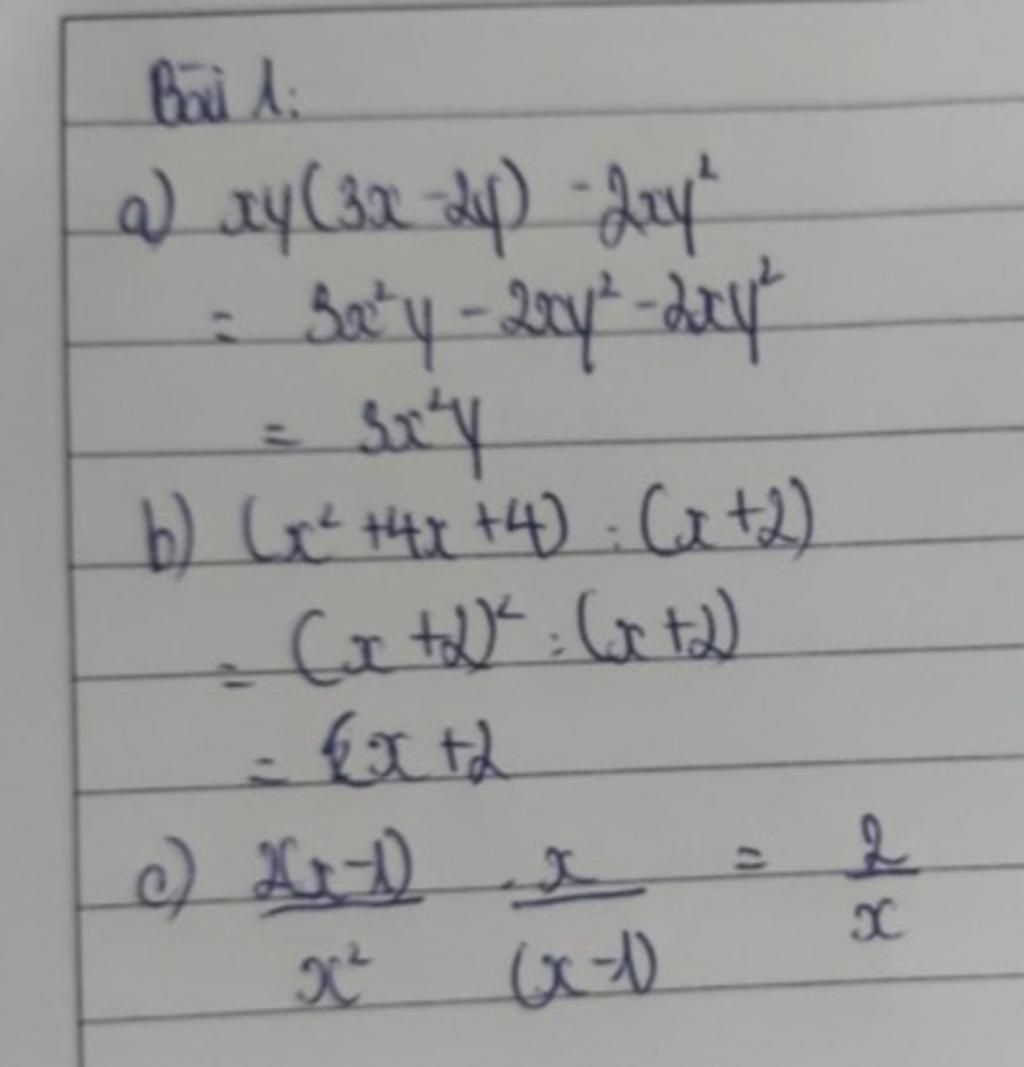 Bài 1:
a) xy(3x - 2y) - 2xy²
= 3x²y - 2xy² - 2xy²
= 3x²y
b) (x² + 4x + 4) : (x + 2)
= (x + 2)² : (x + 2)
= x + 2
c) 2(x - 1)/x² . x/(x - 1) = 2/x